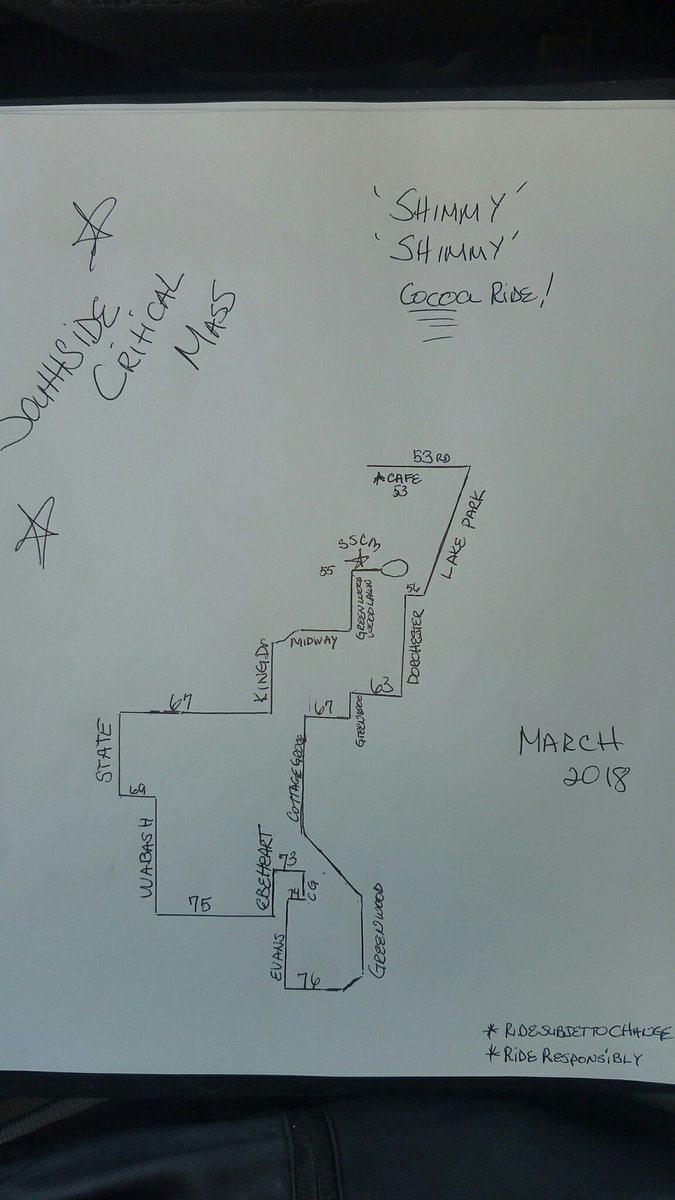 SOUTHSIDE
CRITICAL
MASS
'SHIMMY'
'SHIMMY'
COCOA RIDE!
53RD
*CAFE
53
LAKE PARK
SSCM
55
GREENWOOD
WOODLAWN
DORCHESTER
MIDWAY
KING DR
63
67
67
GREENWOOD
STATE
COTTAGE GROVE
MARCH
2018
69
WABASH
EBEHEART
73
CG
75
EVANS
GREENWOOD
76
*RIDE SUBJET TO CHANGE
*RIDE RESPONSIBLY